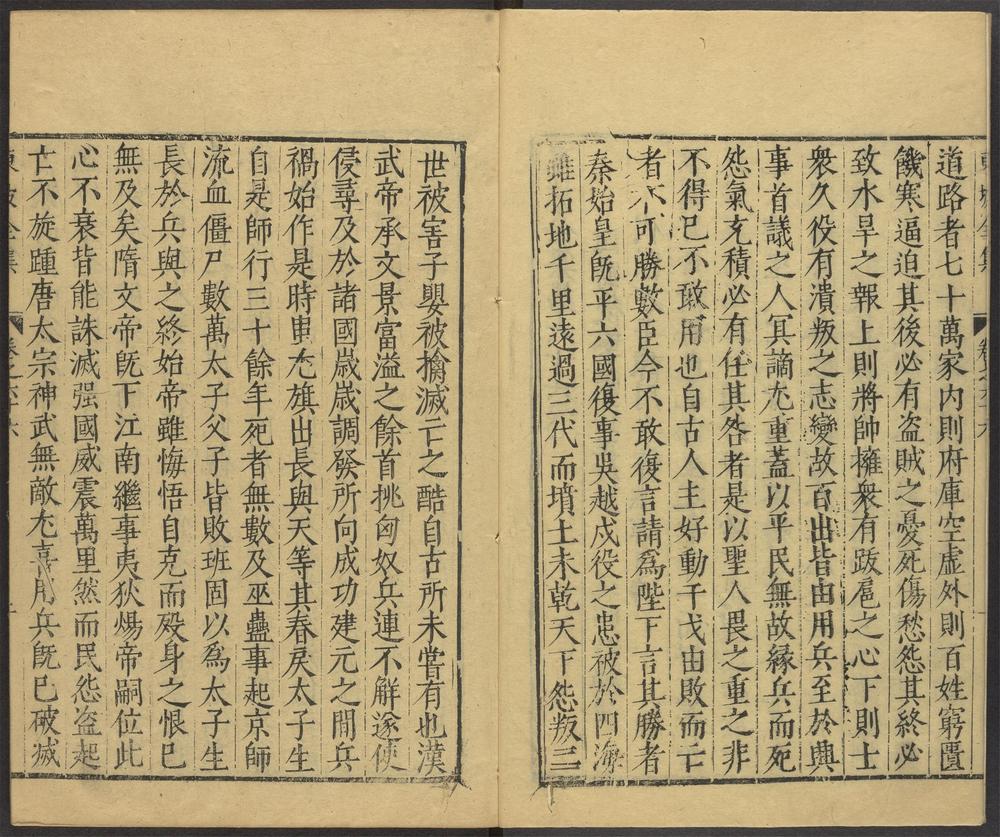 道路者七十萬家内則府庫空虛外則百姓窮匱
饑寒逼迫其後必有盗賊之憂死傷愁怨其終必
致水旱之報上則將帥擁衆有䟦扈之心下則士
衆久役有潰叛之志變故百出皆由用兵至於興
事首議之人冥謫尤重蓋以平民無故緣兵而死
怨氣充積必有任其咎者是以聖人畏之重之非
不得已不敢用也自古人主好動干戈由敗而亡
者不可勝數臣今不敢復言請爲陛下言其勝者
秦始皇旣平六國復事吳越戍役之患被於四海
雖拓地千里遠過三代而墳土未乾天下怨叛三
世被害子嬰被擒滅亡之酷自古所未嘗有也漢
武帝承文景富溢之餘首挑匈奴兵連不解遂使
侵尋及於諸國歲歲調發所向成功建元之間兵
禍始作是時蚩尤旗出長與天等其春戾太子生
自是師行三十餘年死者無數及巫蠱事起京師
流血僵尸數萬太子父子皆敗班固以爲太子生
長於兵與之終始帝雖悔悟自克而殁身之恨已
無及矣隋文帝旣下江南繼事夷狄煬帝嗣位此
心不衰皆能誅滅强國威震萬里然而民怨盗起
亡不旋踵唐太宗神武無敵尤喜用兵旣已破滅